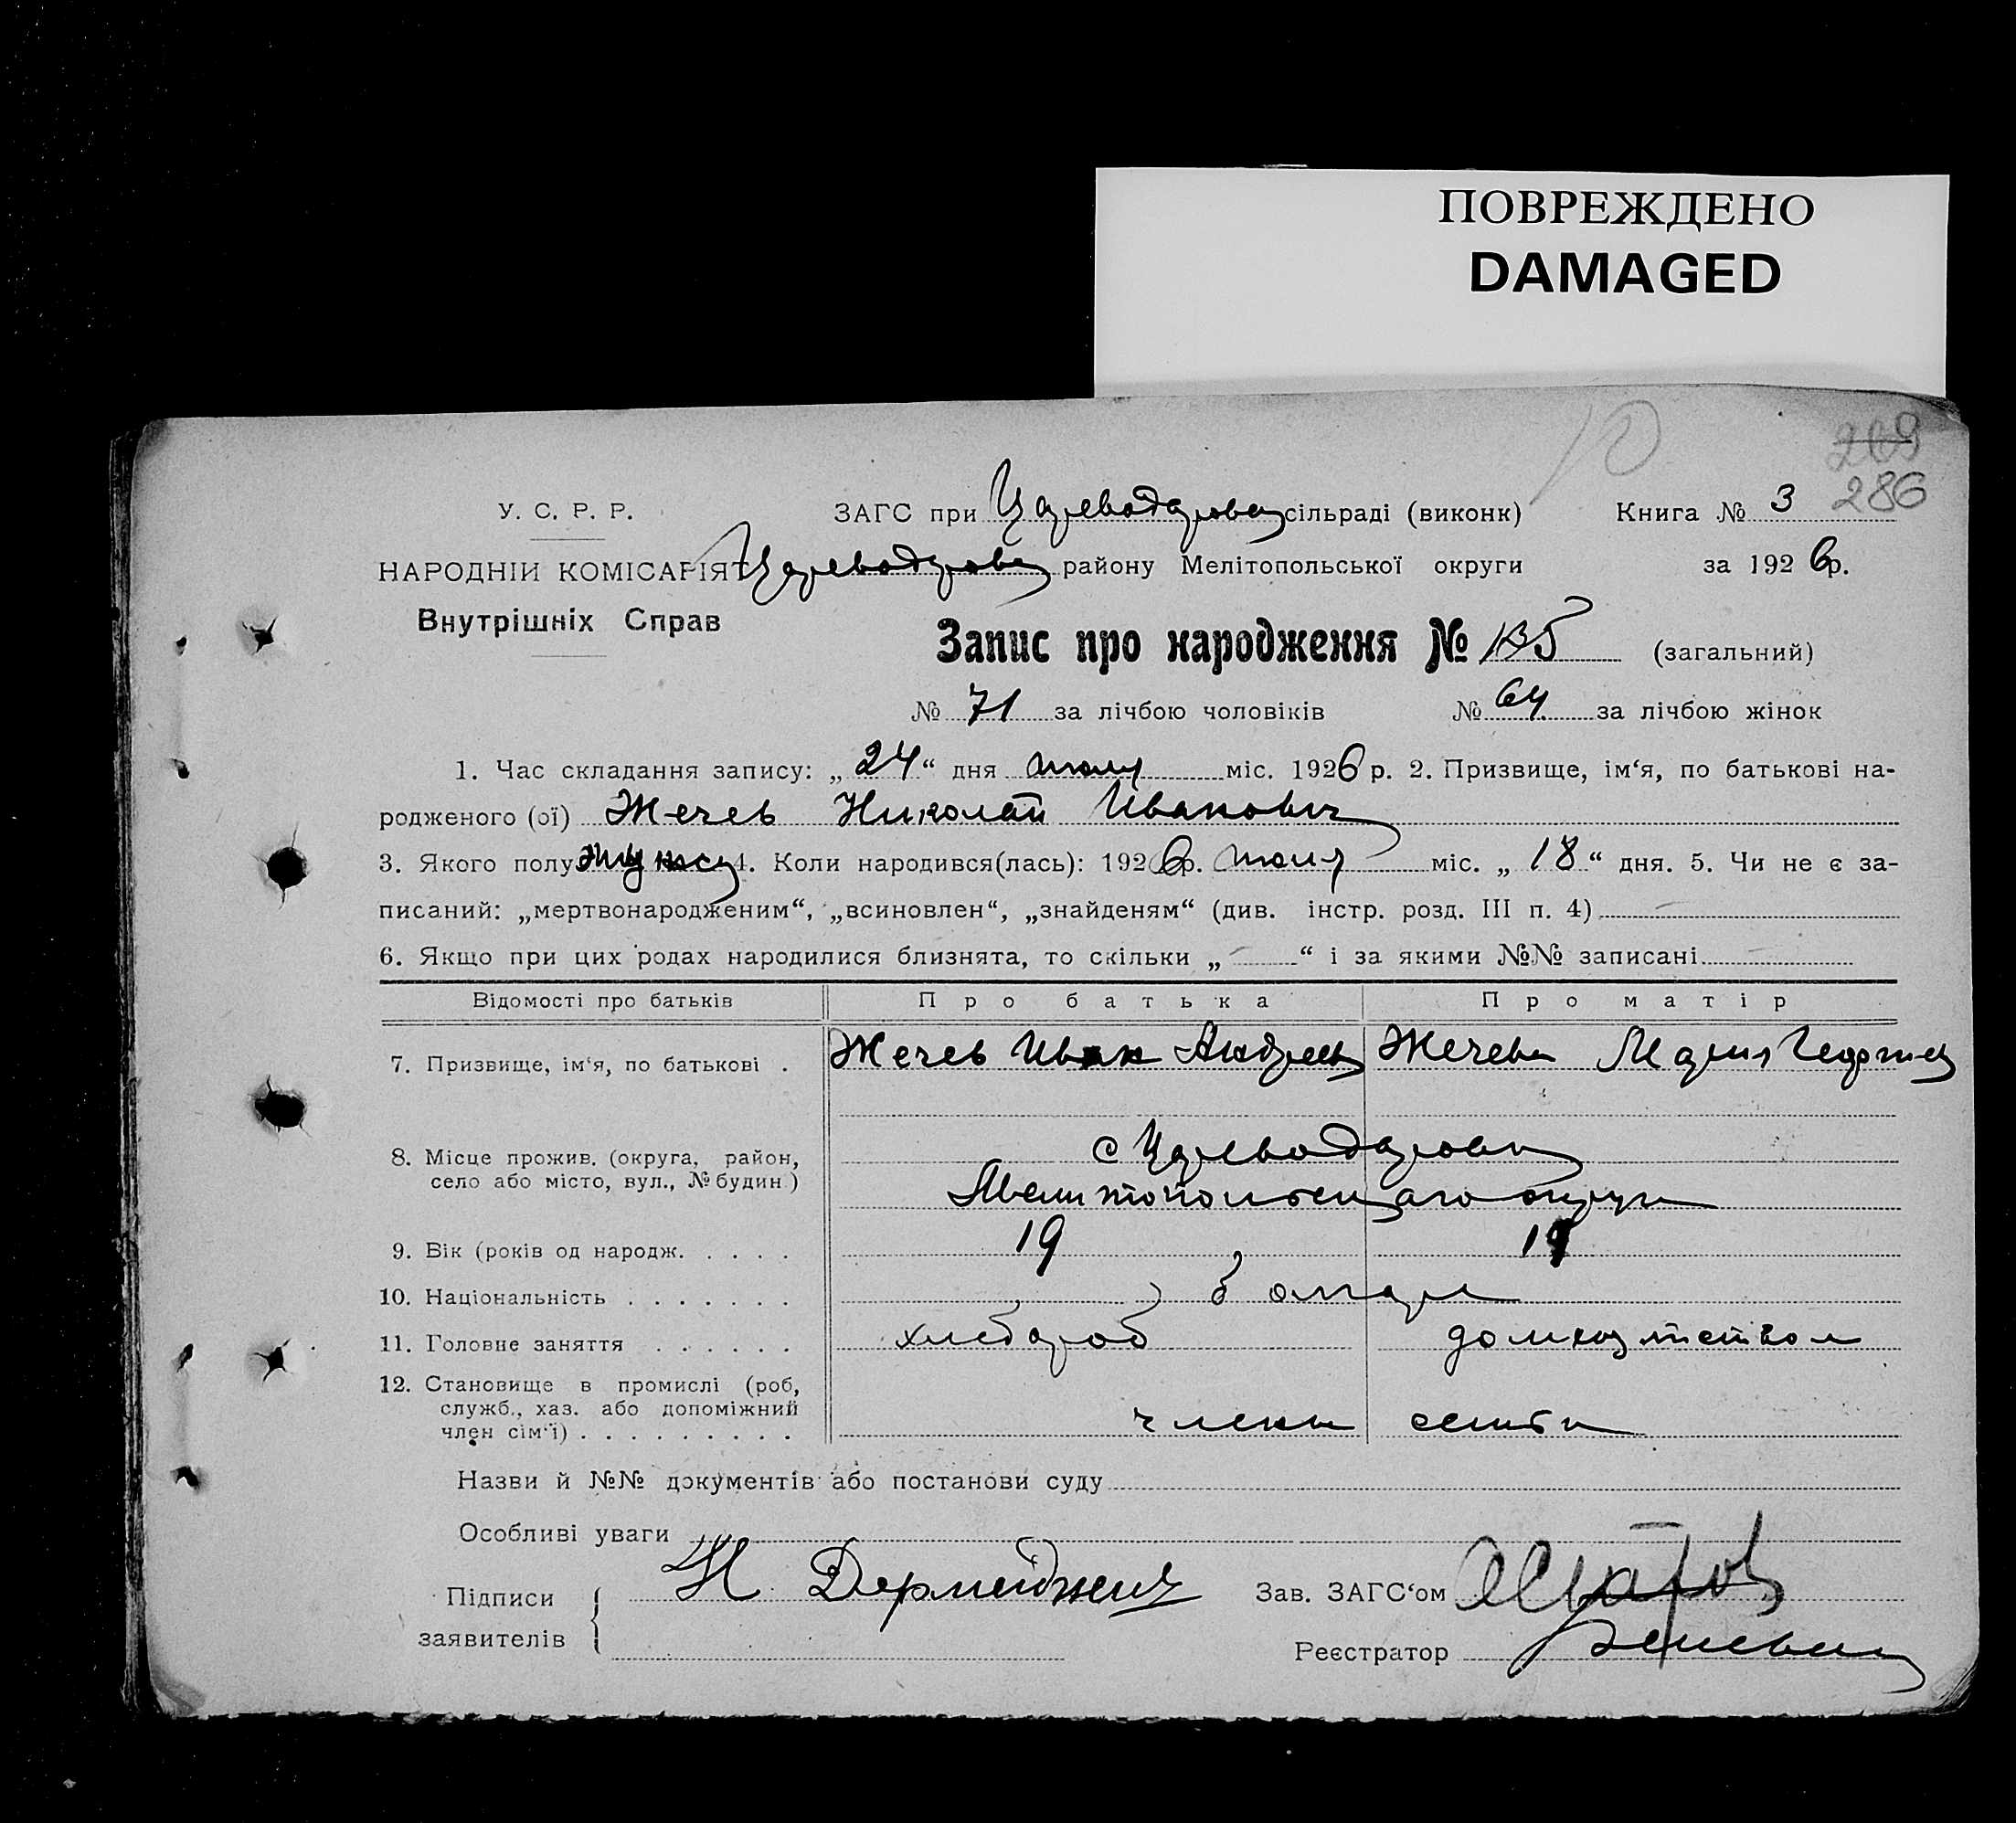 ПОВРЕЖДЕНО
DAMAGED
209
286
У. С. Р. Р.
ЗАГС при Цареводаровск сільраді (виконк)
Книга № 3
НАРОДНІЙ КОМІСАРІЯТ
Цареводаровск району Мелітопольської округи
за 1926р.
Внутрішніх Справ
Запис про народження № 135 (загальний)
№ 71 за лічбою чоловіків
№ 64 за лічбою жінок
1. Час складання запису: „24“ дня июля міс. 1926 р. 2. Призвище, ім‘я, по батькові на-
родженого (ої) Жечев Николай Иванович
3. Якого полу мужск 4. Коли народився(лась): 1926р. июля міс. „18“ дня. 5. Чи не є за-
писаний: „мертвонародженим“, „всиновлен“, „знайденям“ (див. інстр. розд. III п. 4)
6. Якщо при цих родах народилися близнята, то скільки „ — “ і за якими №№ записані
Відомості про батьків
Про батька
Про матір
7. Призвище, ім‘я, по батькові .
Жечев Иван Андреев
Жечева Мария Георгиев
8. Місце прожив. (округа, район,
село або місто, вул., № будин.)
с Цареводаровка
Мелитопольскаго округа
9. Вік (років од народж. . . . .
19
19
10. Національність . . . . . . .
болгаре
11. Головне заняття . . . . . .
хлебороб
домхозяйством
12. Становище в промислі (роб,
служб., хаз. або допоміжний
член сім‘ї) . . . . . . . . .
члены семьи
Назви й №№ документів або постанови суду
Особливі уваги
Підписи
заявителів
Н Дерменджи
Зав. ЗАГС‘ом
Реєстратор